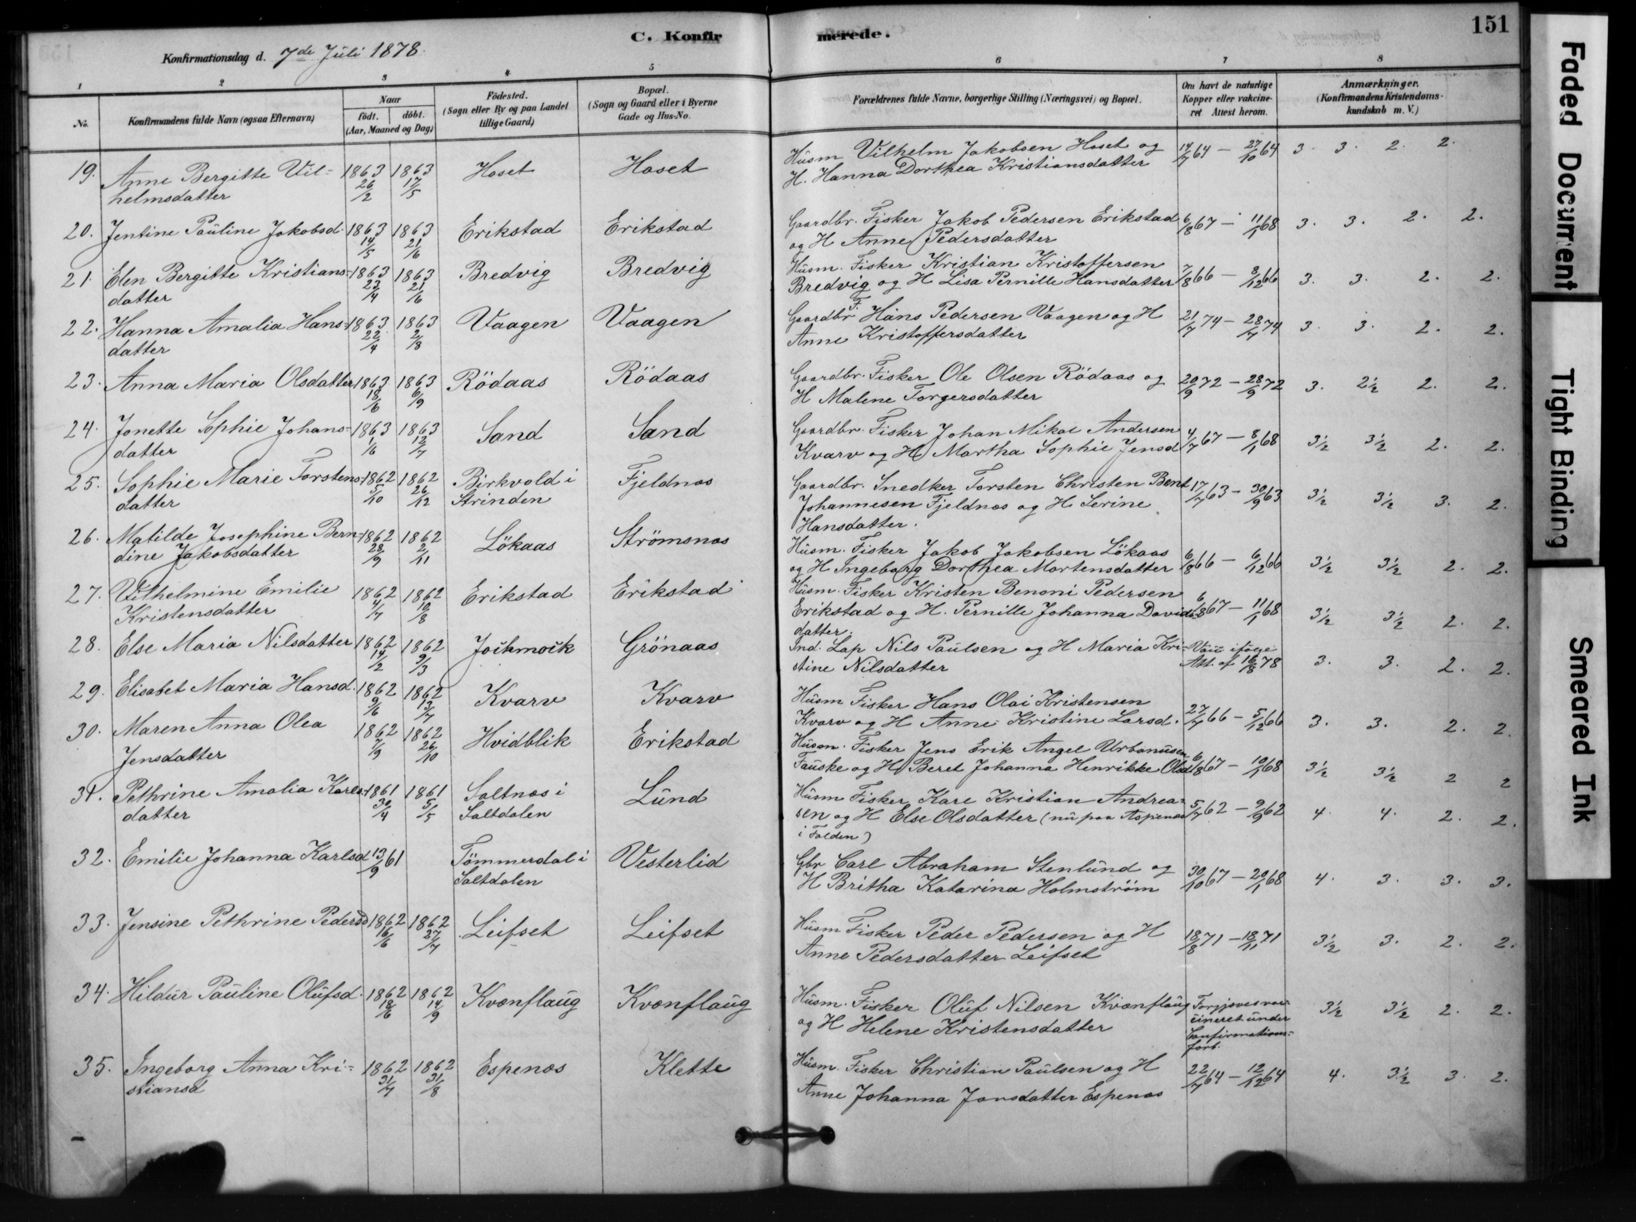 C. Konfirmerede.
151
Konfirmationsdag d. 7de Juli 1878.
1 2 3 4 5 6 7 8
No. Konfirmandens fulde Navn (ogsaa Efternavn) Naar født. døbt. (Aar, Maaned og Dag) Fødested. (Sogn eller By og paa Landet tillige Gaard) Bopæl. (Sogn og Gaard eller i Byerne Gade og Hus-No. Forældrenes fulde Navne, borgerlige Stilling (Næringsvei) og Bopæl. Om havt de naturlige Kopper eller vaccineret Attest herom. Anmærkninger. (Konfirmandens Kristendomskundskab m. V.)
19. Anne Bergitte Vilhelmsdatter 1863 26/2 1863 17/5 Hoset Hoset Husm Vilhelm Jakobsen Hoset og
H. Hanna Dorthea Kristiansdatter 19/7 64 – 27/10 64 3. 3. 2. 2.
20. Jentine Pauline Jakobsd. 1863 14/5 1863 21/6 Erikstad Erikstad Gaardbr. Fisker Jakob Pedersen Erikstad
og H Anne Pedersdatter 6/8 67 – 11/1 68 3. 3. 2. 2.
21. Elen Bergitte Kristiansdatter 1863 23/4 1863 21/6 Bredvig Bredvig Husm. Fisker Kristian Kristoffersen
Bredvig og H Lisa Pernille Hansdatter 7/8 66 – 8/12 66 3. 3. 2. 2.
22. Hanna Amalia Hansdatter 1863 22/4 1863 2/8 Vaagen Vaagen Gaardbr F. Hans Pedersen Vaagen og H
Anne Kristoffersdatter 21/7 74 – 28/7 74 3. 3. 2. 2.
23. Anna Maria Olsdatter 1863 18/6 1863 6/9 Rödaas Rödaas Gaardbr. Fisker Ole Olsen Rödaas og
H Malene Torgersdatter 20/9 72 – 28/9 72 3. 2½ 2. 2.
24. Jonette Sophie Johansdatter 1863 1/6 1863 12/7 Sand Sand Gaardbr. Fisker Johan Mikal Andersen
Kvarv og H Martha Sophie Jensd 4/7 67 – 8/1 68 3½ 3½ 2. 2.
25. Sophie Marie Torstensdatter 1862 5/10 1862 26/12 Birkvold i Strinden Fjeldnæs Gaardbr. Snedker Torsten Christen Bent
Johannesen Fjeldnæs og H Serine
Hansdatter. 17/7 63 – 30/9 63 3½ 3½ 3. 2.
26. Matilde Josephine Berndine Jakobsdatter 1862 22/9 1862 2/11 Lökaas Strömsnæs Husm. Fisker Jakob Jakobsen Lökaas
og H Ingeborg Dorthea Mortensdatter 6/8 66 – 6/12 66 3½ 3½ 2. 2.
27. Vilhelmine Emilie Kristensdatter 1862 4/7 1862 10/8 Erikstad Erikstad Husm. Fisker Kristen Benoni Pedersen
Erikstad og H. Pernille Johanna Davidsdatter. 6/8 67 – 11/1 68 3½ 3½ 2. 2.
28. Else Maria Nilsdatter 1862 14/2 1862 9/3 Jockmock Grönaas Ind. Lap Nils Paulsen og H Maria Kristine Nilsdatter Vacc ifølge Att. af 16/8 78 3. 3. 2. 2.
29. Elisabet Maria Hansd. 1862 9/6 1862 13/7 Kvarv Kvarv Husm Fisker Hans Olai Kristensen
Kvarv og H Anne Kristine Larsd. 27/7 66 – 5/12 66 3. 3. 2. 2.
30. Maren Anna Olea Jensdatter 1862 7/9 1862 26/10 Hvidblik Erikstad Husm. Fisker Jens Erik Angel Urbanusen
Fauske og H Beret Johanna Henrikke Olsd 6/8 67 – 10/1 68 3½ 3½ 2 2
31. Pethrine Amalia Karlsdatter 1861 30/4 1861 5/5 Saltnæs i Saltdalen Lund Husm Fisker Kare Kristian Andreasen og H Else Olsdatter (nu paa Aspenæs
i Folden) 5/7 62 – 9/9 62 4. 4. 2. 2.
32. Emilie Johanna Karlsd 13/9 61 Tömmerdal i Saltdalen Vesterlid Gbr Carl Abraham Stenlund og
H Britha Katarina Holmström 30/10 67 – 20/1 68 4. 3. 3. 3.
33. Jensine Pethrine Pedersd 1862 16/6 1862 27/7 Leifset Leifset Husm Fisker Peder Pedersen og H
Anne Pedersdatter Leifset 18/8 71 – 18/11 71 3½ 3. 2. 2.
34. Hildur Pauline Olufsd. 1862 18/6 1862 14/9 Kvænflaug Kvænflaug Husm. Fisker Oluf Nilsen Kvænflaug
og H Helene Kristensdatter Forgjæves vaccineret under Konfirmationsforb. 3½ 3½ 2. 2.
35. Ingeborg Anna Kristiansd 1862 31/7 1862 31/8 Espenæs Klette Husm. Fisker Christian Paulsen og H
Anne Johanna Jonsdatter Espenæs 22/7 64 – 12/12 64 4. 3½ 3. 2.
Faded Document
Tight Binding
Smeared Ink